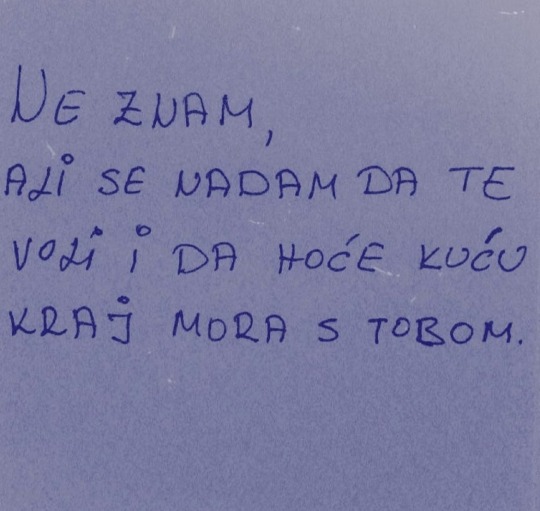 NE ZNAM,
ALi SE NADAM DA TE
VOLi i DA HOĆE KUĆU
KRAJ MORA S TOBOM.